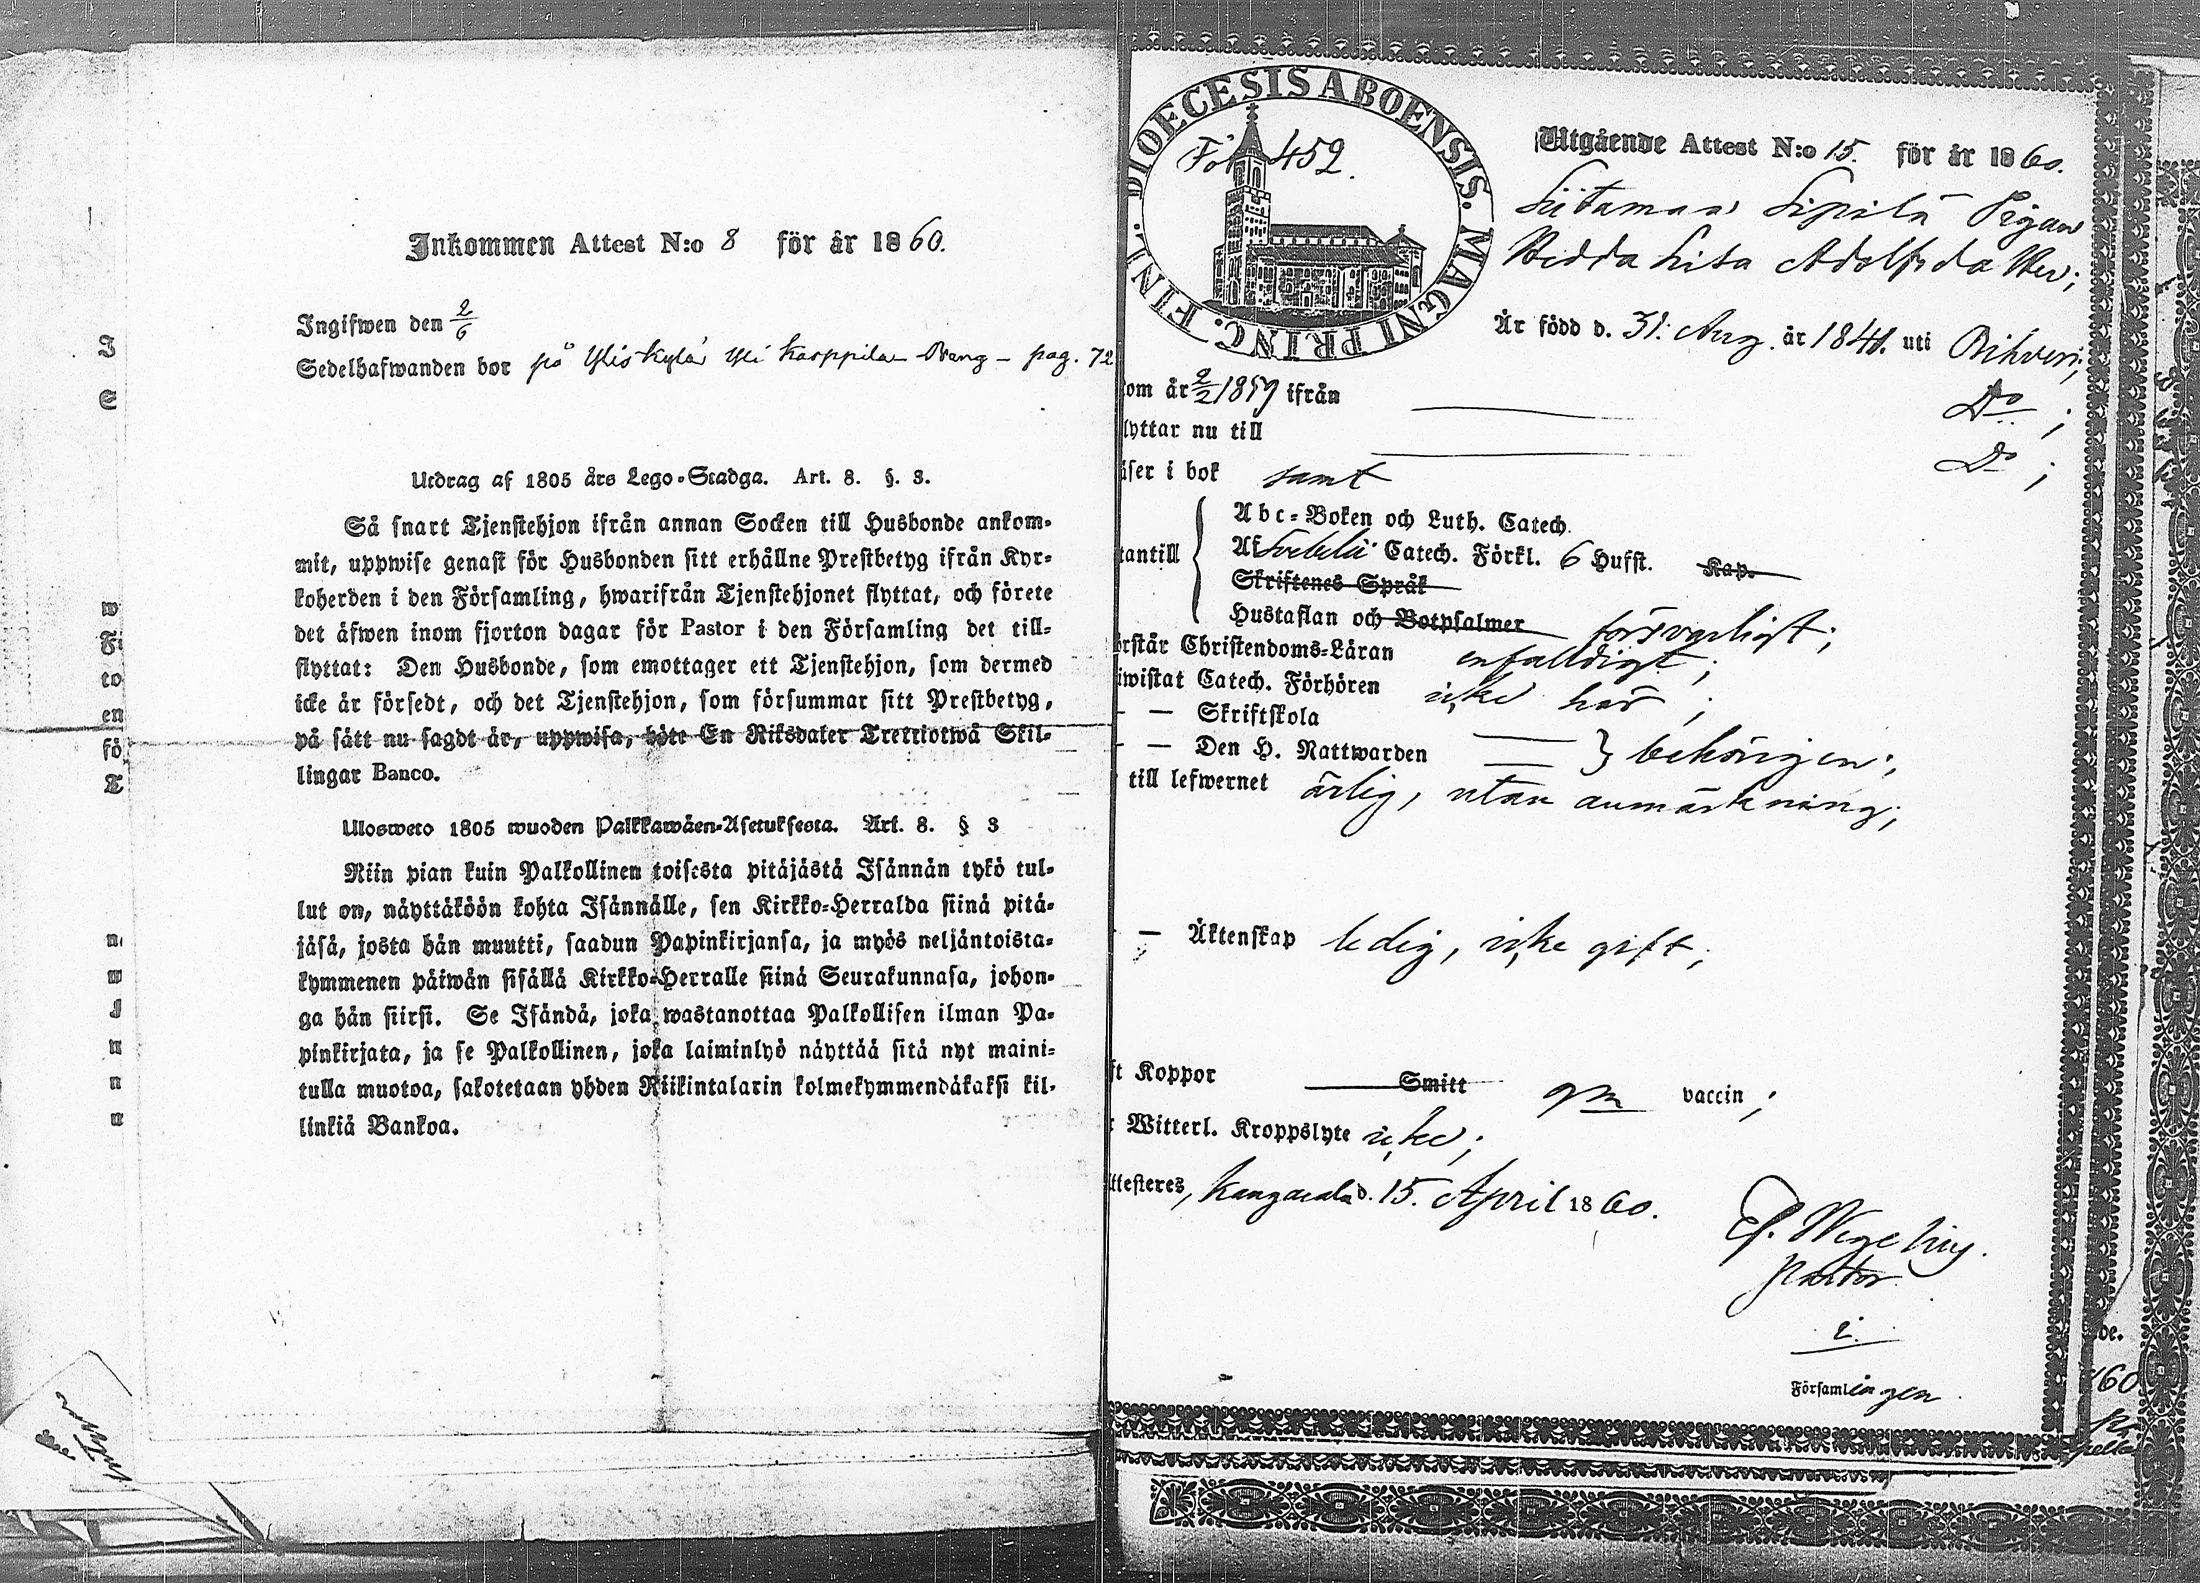 Inkommen Attest N:o 8 för år 1860.
Ingifwen den 2/6
Sedelhafwanden bor på Yliskylä Yli Karppila pag. 72
Utdrag af 1805 års Lego-Stadga. Art. 8. §. 3.
Så snart Tjenstehjon ifrån annan Socken till Husbonde ankom-
mit, uppwise genast för Husbonden sitt erhållne Prestbetyg ifrån Kyr-
koherden i den Församling, hwarifrån Tjenstehjonet flyttat, och förete
det äfwen inom fjorton dagar för Pastor i den Församling det till-
flyttat: Den Husbonde, som emottager ett Tjenstehjon, som dermed
icke är försedt, och det Tjenstehjon, som försummar sitt Prestbetyg,
på sätt nu sagdt är, uppwisa, böte En Riksdaler Trettiotwå Skil-
lingar Banco.
Ulosweto 1805 wuoden Palkkawäen-Asetuksesta. Art. 8. § 3
Niin pian kuin Palkollinen toisesta pitäjästä Isännän tykö tul-
lut on, näyttäköön kohta Isännälle, sen Kirkko-Herralda siinä pitä-
jäsä, josta hän muutti, saadun Papinkirjansa, ja myös neljäntoista-
kymmenen päiwän sisällä Kirkko-Herralle siinä Seurakunnasa, johon-
ga hän siirsi. Se Isändä, joka wastanottaa Palkollisen ilman Pa-
pinkirjata, ja se Palkollinen, joka laiminlyö näyttää sitä nyt maini-
tulla muotoa, sakotetaan yhden Riikintalarin kolmekymmendäkaksi kil-
linkiä Bankoa.
DIOECESIS ABOENSIS. MAGNI PRINC. FINL.
Fol 452.
Utgående Attest N:o 15. för år 1860.
Liitamaa Sipilä Pigan
Hedda Lisa Adolfsda Her;
Är född d. 31. Aug. år 1841. uti
kom år 2/2 1859 ifrån Do ;
lyttar nu till Do ;
äser i bok samt
Abc-Boken och Luth. Catech.
tantill Af Svebelii Catech. Förkl. 6 Hufst. Kap.
Skriftenes Språk
Hustaflan och Botpsalmer försvarligt;
örstår Christendoms-Läran enfalldigt;
iwistat Catech. Förhören icke här ;
— Skriftskola
— Den H. Nattwarden } behörigen;
till lefwernet ärlig, utan anmärkning;
— Äktenskap ledig, icke gift;
ft Koppor Smitt gm vaccin ;
Witterl. Kroppslyte icke;
ttesteres, Kangasala d. 15. April 1860.
Pastor
i
Församlingen